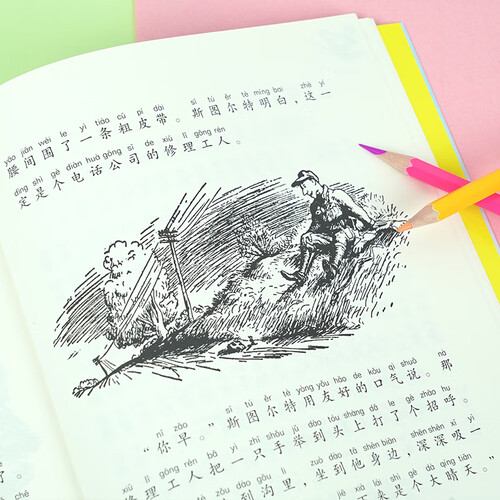 yāo jiān wéi le yì tiáo cū pí dài sī tú ěr tè míng bai zhè yí
腰间围了一条粗皮带。斯图尔特明白，这一
dìng shì gè diàn huà gōng sī de xiū lǐ gōng rén
定是个电话公司的修理工人。
nǐ zǎo sī tú ěr tè yòng yǒu hǎo de kǒu qì shuō nà
“你早。”斯图尔特用友好的口气说。那
lǐ gōng rén bǎ yì zhī shǒu jǔ dào tóu shàng dǎ le gè zhāo hu
修理工人把一只手举到头上打了个招呼。
dào gōu lǐ zuò dào tā shēn biān shēn shēn xī yì
到沟里，坐到他身边，深深吸一
lái shì gè dà qíng tiān
来是个大晴天。”